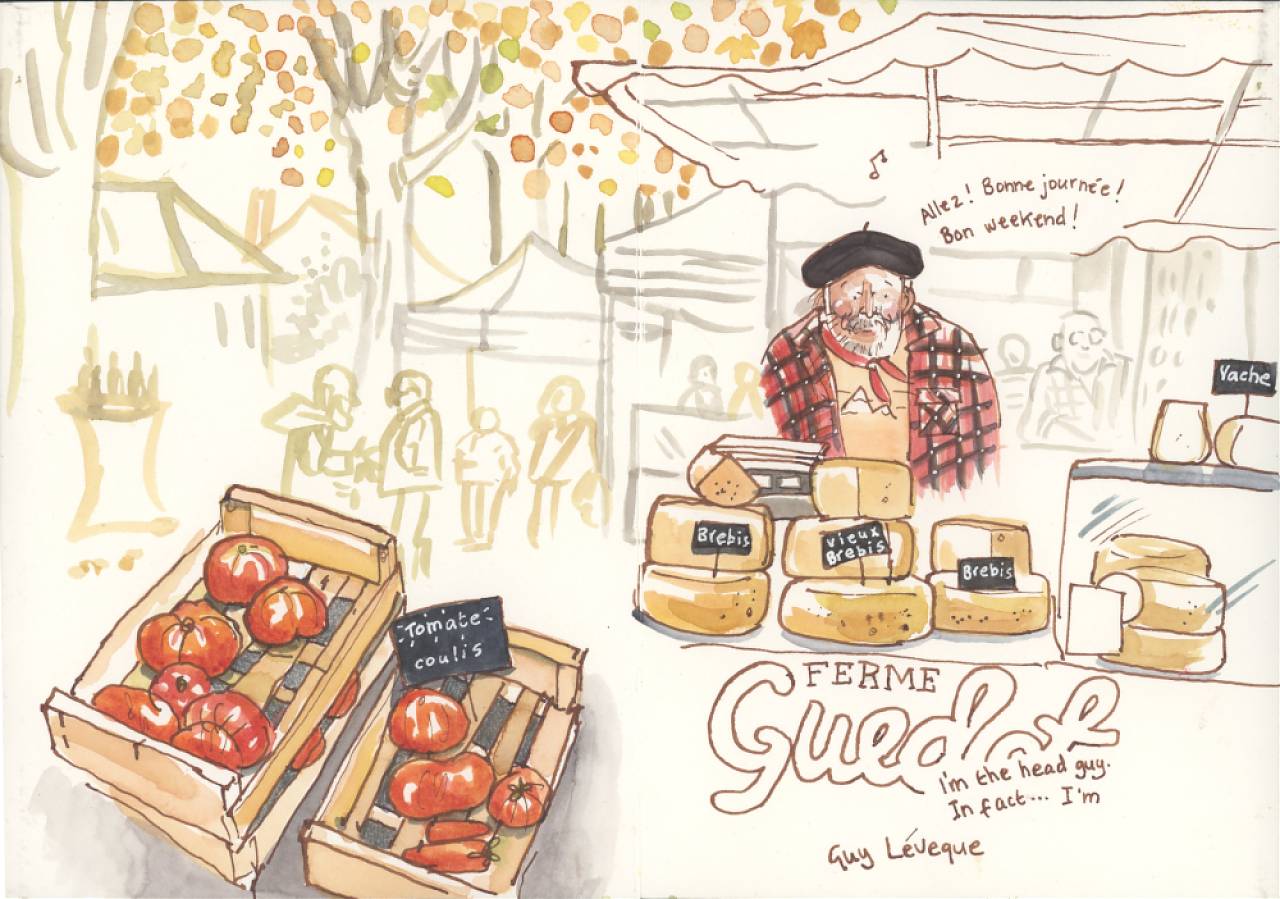 Allez! Bonne journée!
Bon weekend!
Vache
Brebis
vieux
Brebis
Brebis
Tomate
coulis
FERME
Guedot
I'm the head guy.
In fact... I'm
Guy Léveque